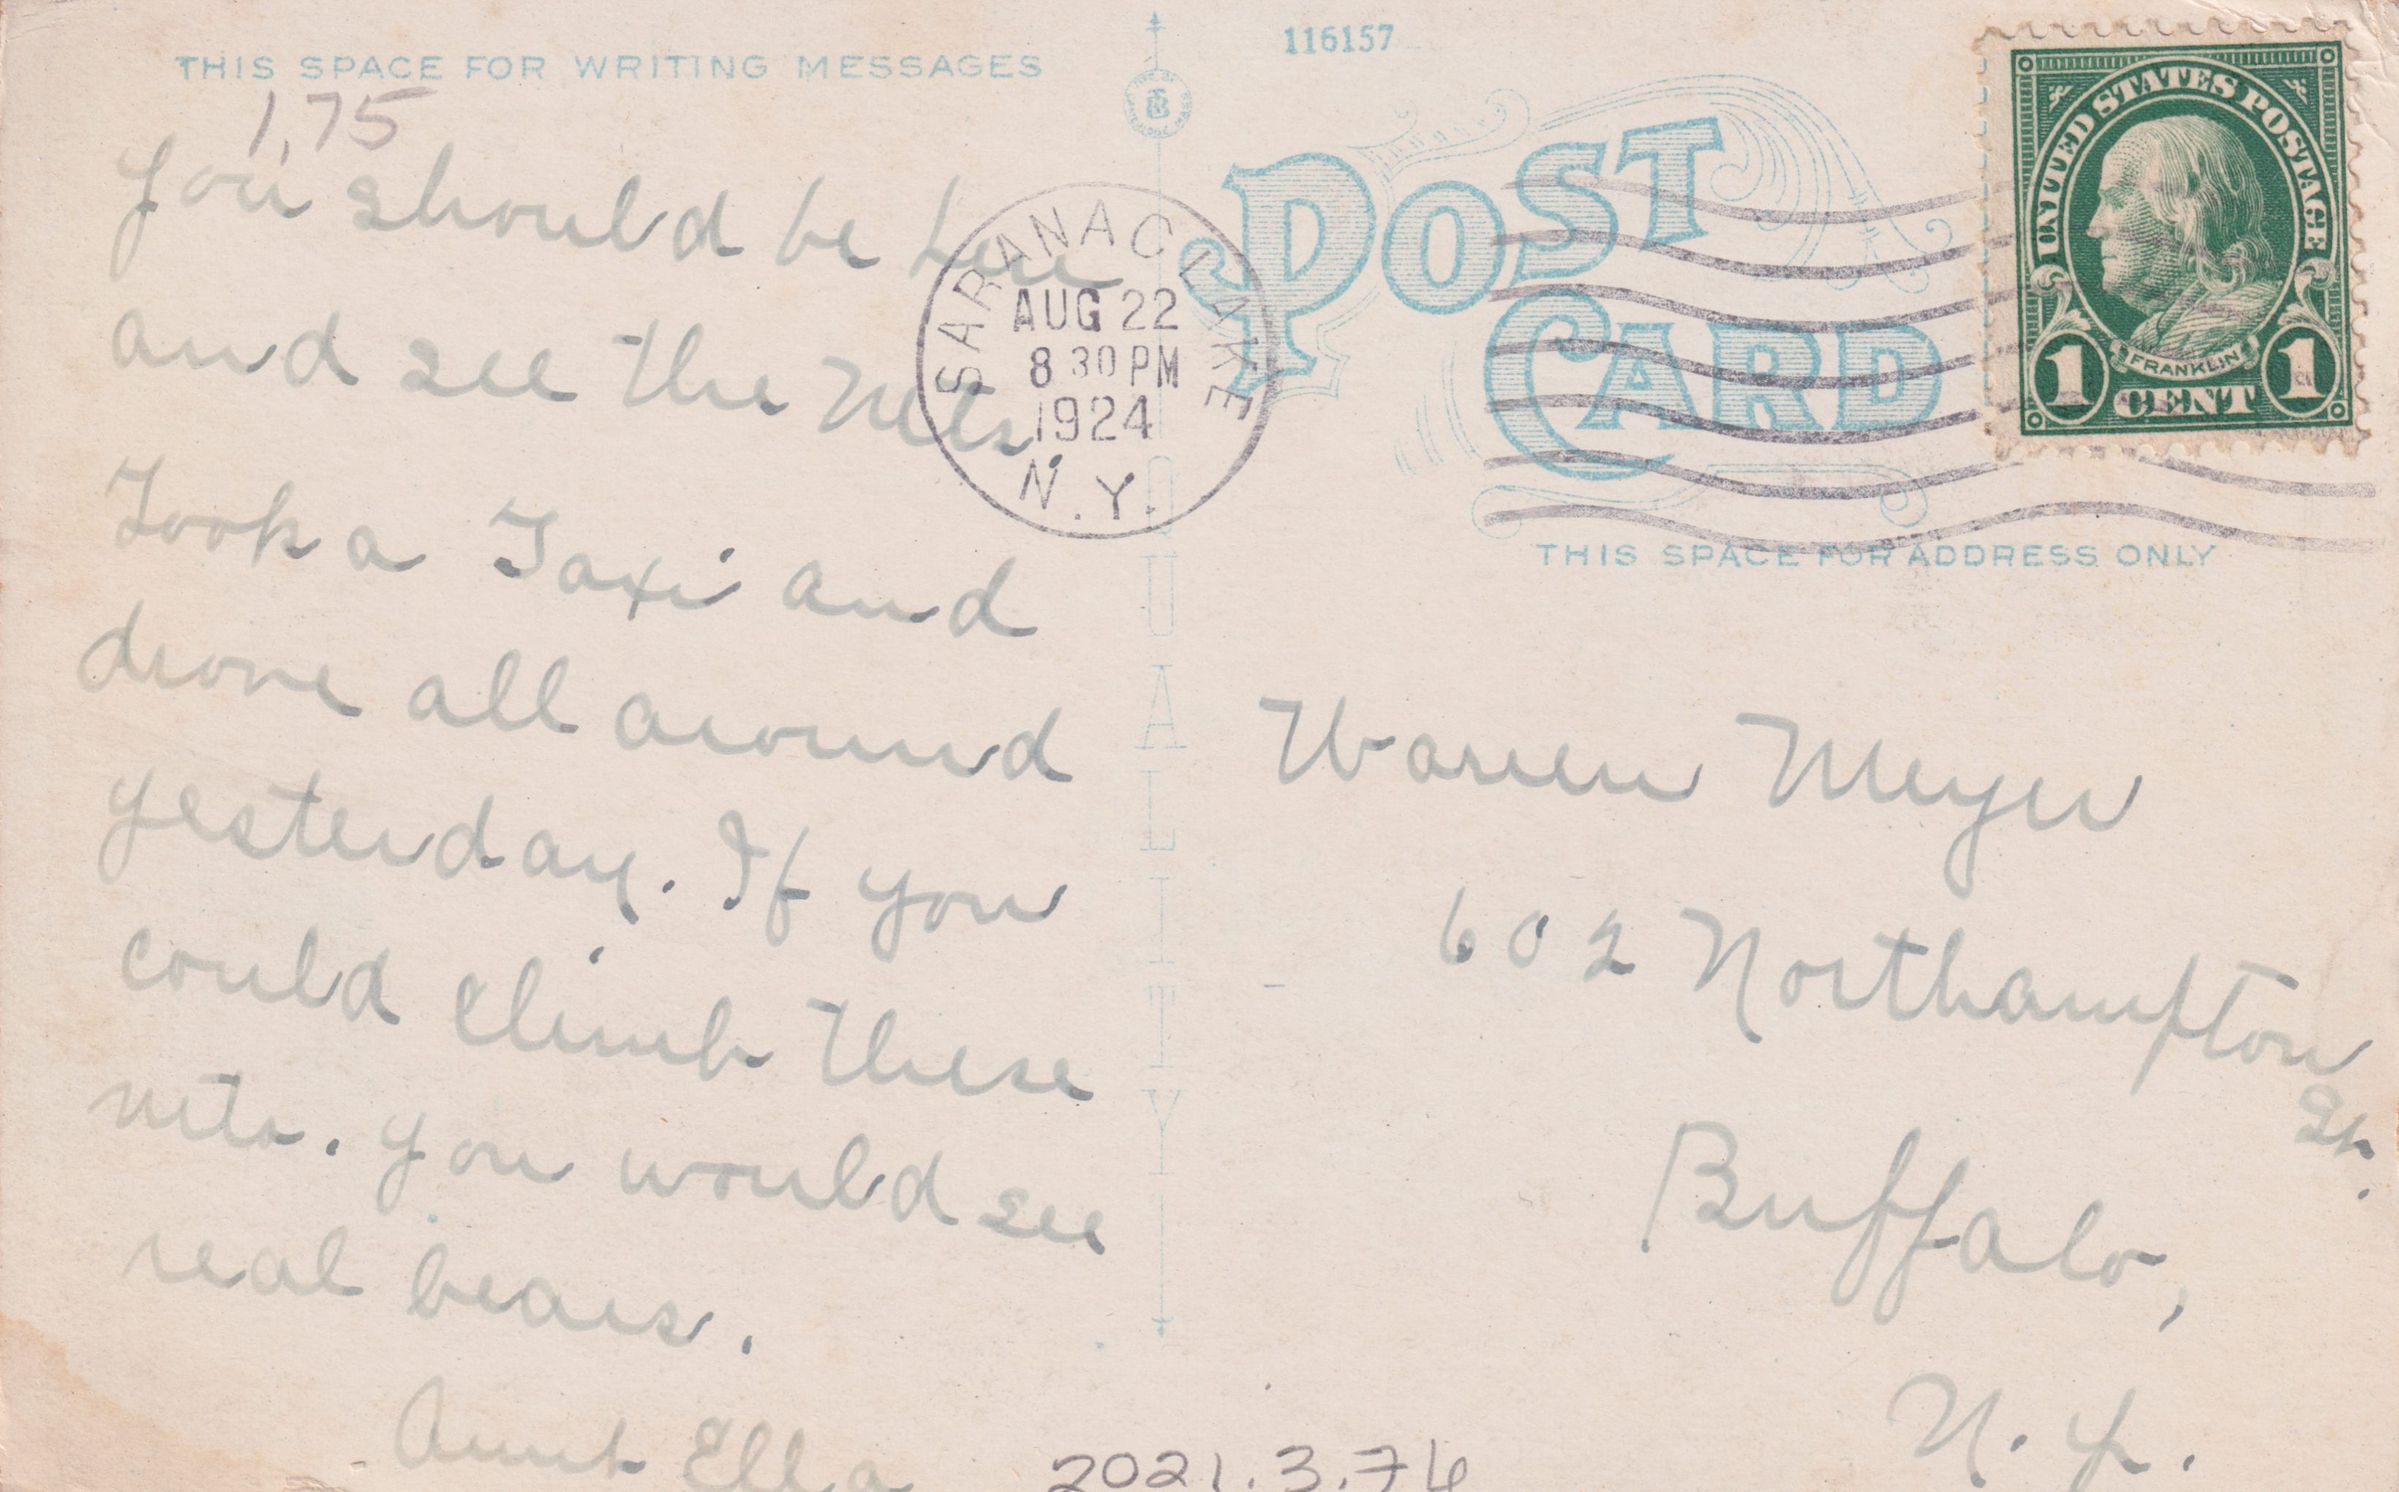 THIS SPACE FOR WRITING MESSAGES
1,75
You should be here
and see the Mts.
Took a Taxi and
drove all around
yesterday. If you
could climb these
mts. you would see
real bears.
Aunt Ella
QUALITY
116157
POST
CARD
SARANAC LAKE
AUG 22
8 30 PM
1924
N.Y.
UNITED STATES POSTAGE
FRANKLIN
1 CENT 1
THIS SPACE FOR ADDRESS ONLY
Warren Meyer
602 Northampton
St.
Buffalo,
N. Y.
2021.3.76